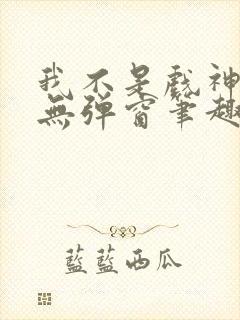 我不是戲神
無彈窗筆趣
藍藍西瓜